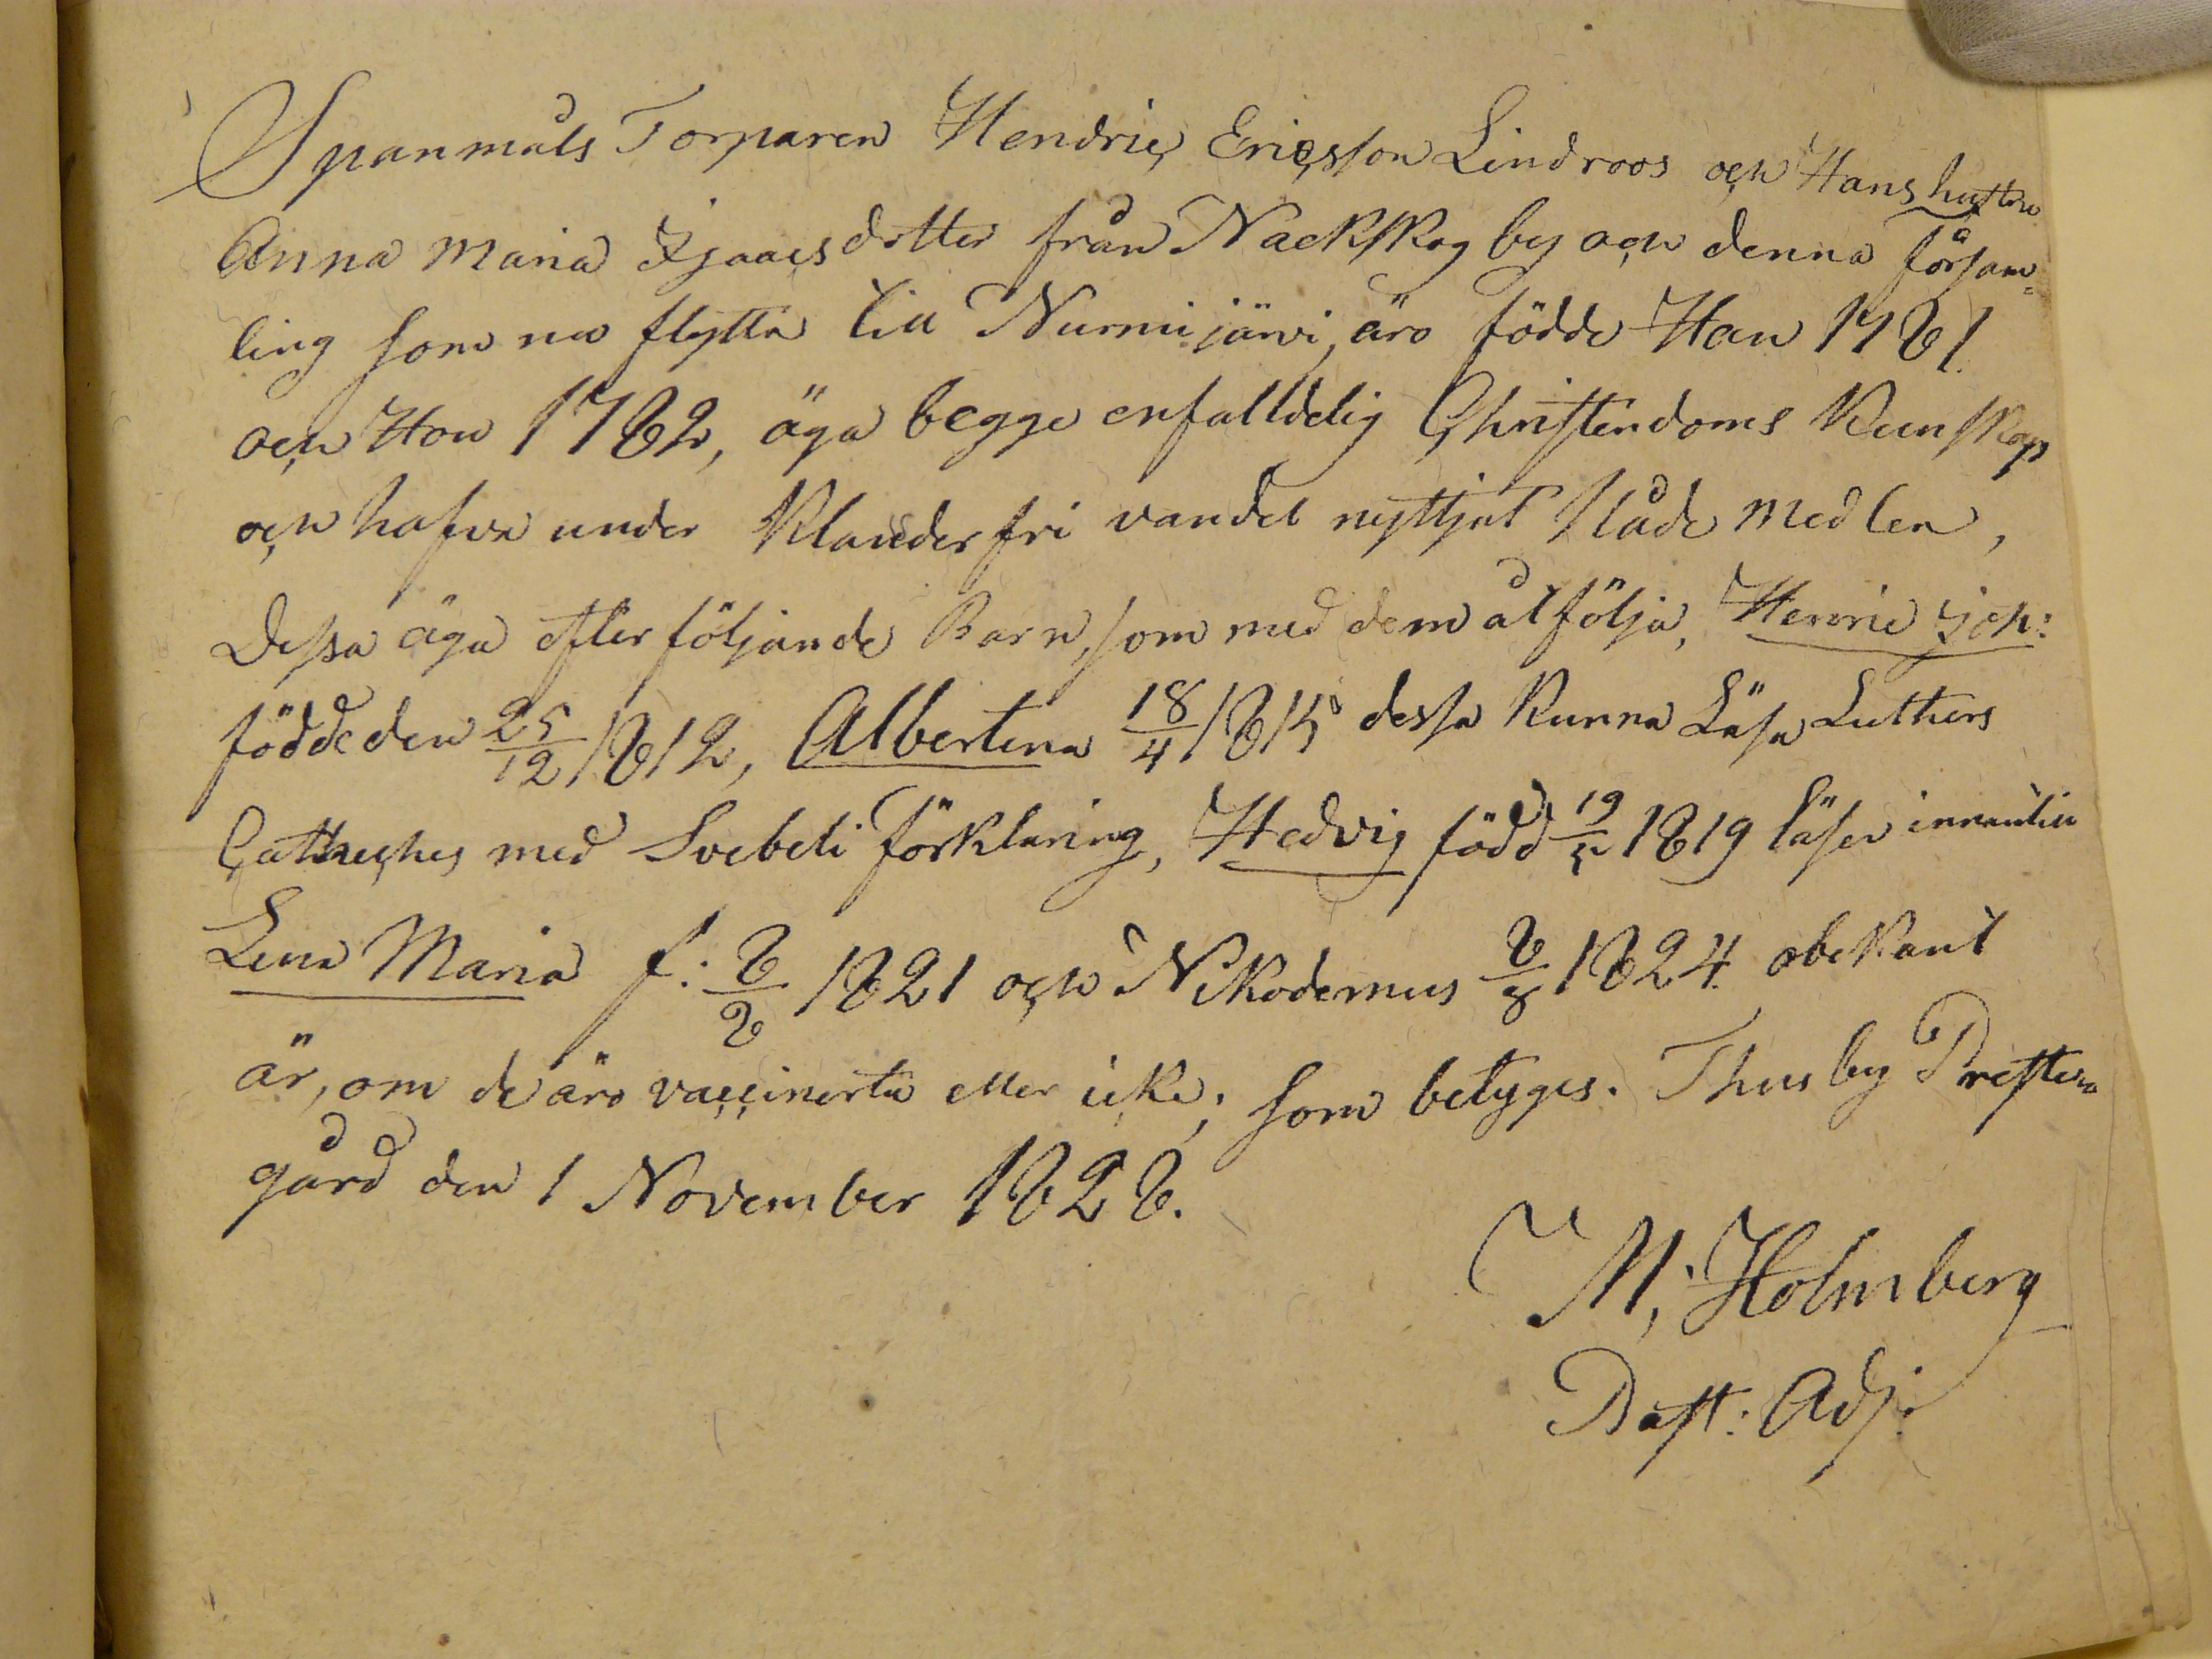 Spanmåls Torparen Hendric Ericsson Lindroos och Hans hustru
Anna Maria Isaacsdotter från Nackskog by och denna försam-
ling som nu flytta till Nurmijärvi, äro födde Han 1781.
och Hon 1782, äga begge enfalldelig Christendoms Kunskap
och hafva under Klanderfri vandel nyttjat Nåde medlen,
Dessa äga efterföljande Barn, som med dem åtfölja, Henric Joh:
födde den 25/12 1812, Albertina 18/4 1815 dessa Kunna Läsa Luthers
Cattheches med Svebeli förklaring, Hedvig född 19/5 1819 läser innantill
Lena Maria f: 8/8 1821 och Nikodemus 8/8 1824. obekant
är, om de äro vaccinerta eller icke; som betyges. Thusby Preste-
gård den 1 November 1828.
M; Holmberg
Past: Adj: